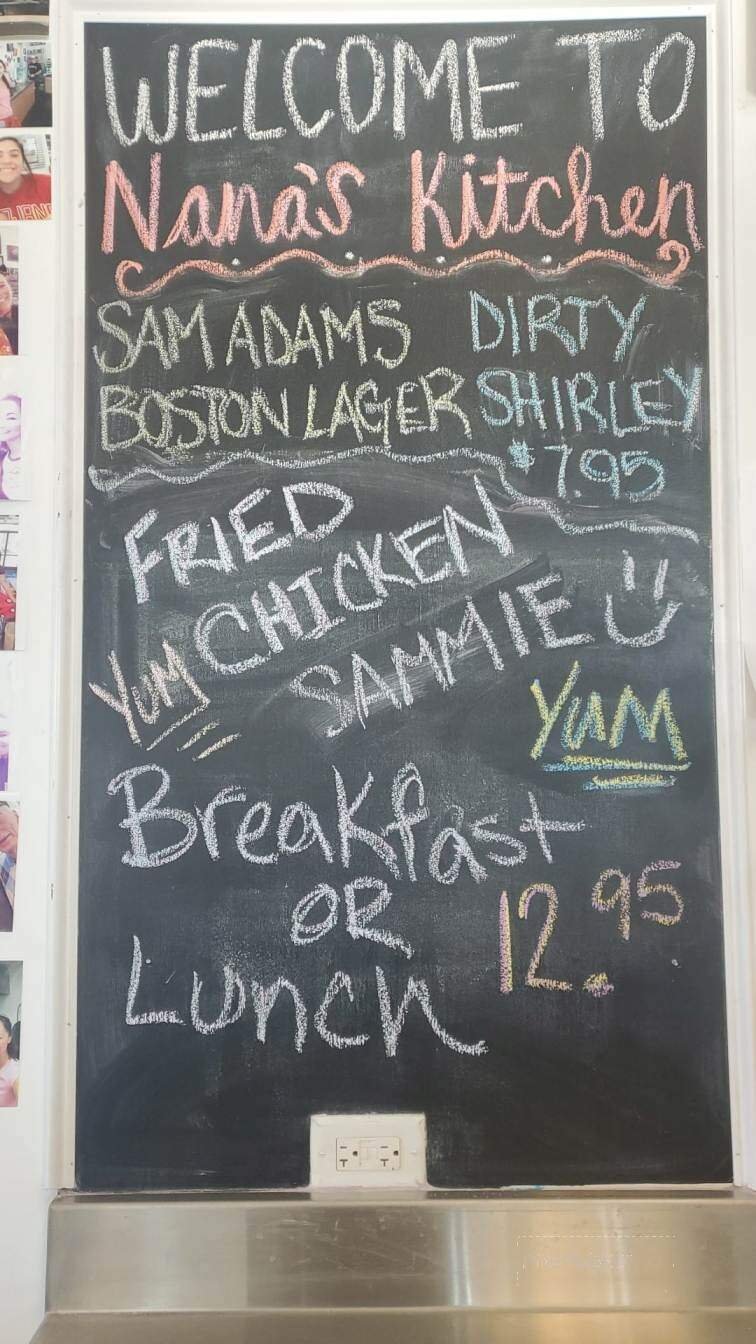 WELCOME TO
Nana's Kitchen
SAM ADAMS
BOSTON LAGER
DIRTY
SHIRLEY
$7.95
FRIED
CHICKEN
SAMMIE
YUM
YUM
Breakfast
OR
Lunch
12.95